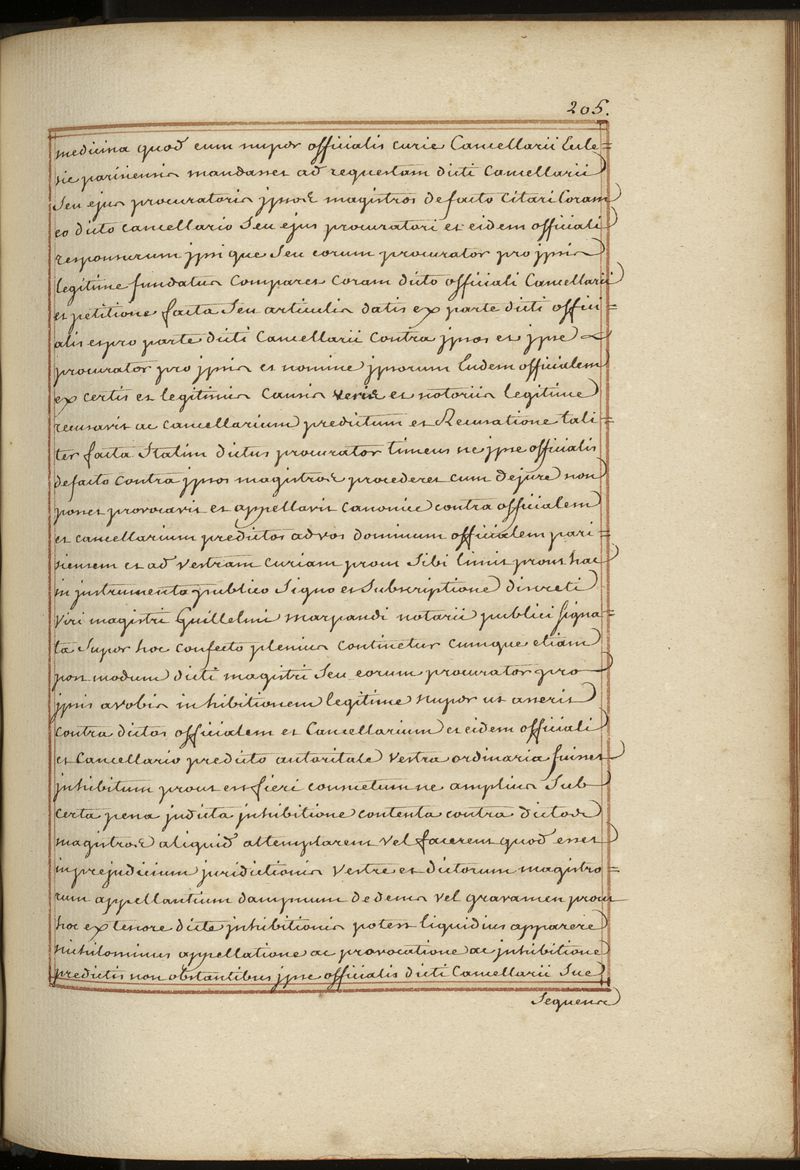 205.
medicina quod cum nuper officialis curie Cancellarii Eccle=
sie parisiensis mandasset ad requestam dicti Cancellarii
Seu ejus procuratoris jpsos magistros defacto citari Coram
eo dicto cancellario Seu ejus procuratori et eidem officiali
responsurum jpsi que Seu eorum procurator pro jpsis
legitime fundatus Comparet Coram dicto officiali Cancellarii
et petitione facta Seu articulis datis ex parte dicti offici=
alis et pro parte dicti Cancellarii contra jpsos et jpse
procurator pro jpsis et nomine jpsorum Eudem officialem
ex certis et legitimis Causis veris et notoriis legitime
recusavit ac cancellarium predictum et Recusatione tali=
ter facta Statim dictus procurator timens ne jpse officialis
defacto contra jpsos magistros procederet cum dejure non
posset provocavit et appellavit canonice contra officialem
et cancellarium predictos advos dominum officialem pari=
siensem et ad vestram curiam prout Sibi licuit prout hac
in justrumento publico Signo et Subscriptione discreti
Viri magistri Guillelmi marpandi notarii publici Signa=
ta Super hoc confecto plenius continetur cumque etiam
post modum dicti magistri Seu eorum procurator pro
jpsis avobis inhibitionem legitime nuper ut asserit
contra dictos officialem et Cancellarium et eidem officiali
et Cancellario predicto autoritate vestra ordinaria fuisset
jnhibitum prout est fieri consuetum ne amplius Sub
certa pena judicta jnhibitione contenta contra dictos
magistros aliquid attemptarent vel facerent quod esset
in prejudicium juridictionis vestre et dictorum magistro=
rum appellantium dampnum dedemus vel gravamen prout
hoc ex tenore dicte jnhibitionis potest liquidius apparere
nichilominus appellatione ac provocatione ac jnhibitione
predictis non obstantibus jpse officialis dicti Cancellarii Sue
Sequens